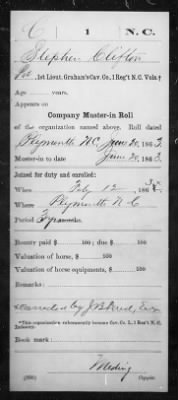 C 1 N.C.
Stephen Clifton
Pvt., 1st Lieut. Graham's Cav. Co., 1 Reg't N.C. Vols.†
Age years.
Appears on
Company Muster-in Roll
of the organization named above. Roll dated
Plymouth N.C. June 20, 1863
Muster-in to date June 20, 1863
Joined for duty and enrolled:
When Feb'y 12, 186
Where Plymouth N.C.
Period 3 years
Bounty paid $ 100; due $ 100
Valuation of horse, $ 100
Valuation of horse equipments, $ 100
Remarks:
by J B
†This organization subsequently became Cav. Co. L, 1 Reg't N.C.
Infantry.
Book mark:
(356) Copyist.